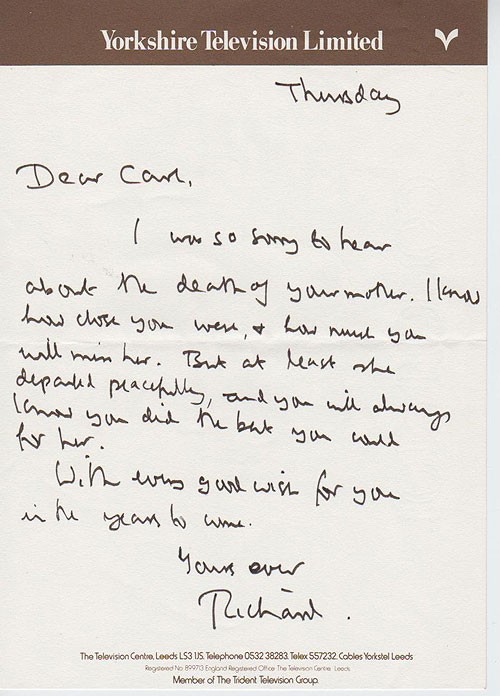 Yorkshire Television Limited
Thursday
Dear Carl,
I was so sorry to hear
about the death of your mother. I know
how close you were, & how much you
will miss her. But at least she
departed peacefully, and you will always
know you did the best you could
for her.
With every good wish for you
in the years to come.
Yours ever
Richard.
The Television Centre, Leeds LS3 1JS. Telephone 0532 38283. Telex 557232. Cables Yorkstel Leeds
Registered No. 899713 England Registered Office The Television Centre Leeds
Member of The Trident Television Group.